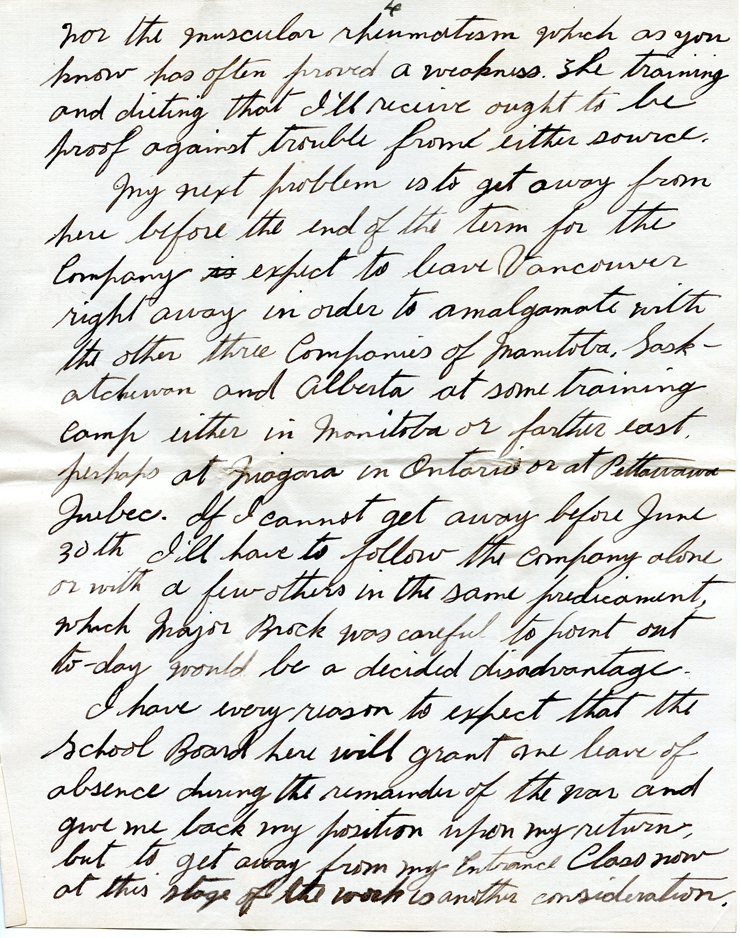 4
nor the muscular rheumatism which as you
know has often proved a weakness. The training
and dieting that I'll receive ought to be
proof against trouble from either source.
My next problem is to get away from
here before the end of the term for the
Company is expect to leave Vancouver
right away in order to amalgamate with
the other three Companies of Manitoba, Sask-
atchewan and Alberta at some training
camp either in Manitoba or farther east,
perhaps at Niagara in Ontario or at Pettawawa
Quebec. If I cannot get away before June
30th I'll have to follow the company alone
or with a few others in the same predicament,
which Major Brock was careful to point out
to-day would be a decided disadvantage.
I have every reason to expect that the
School Board here will grant me leave of
absence during the remainder of the war and
give me back my position upon my return,
but to get away from my Entrance Class now
at this stage of the work is another consideration.